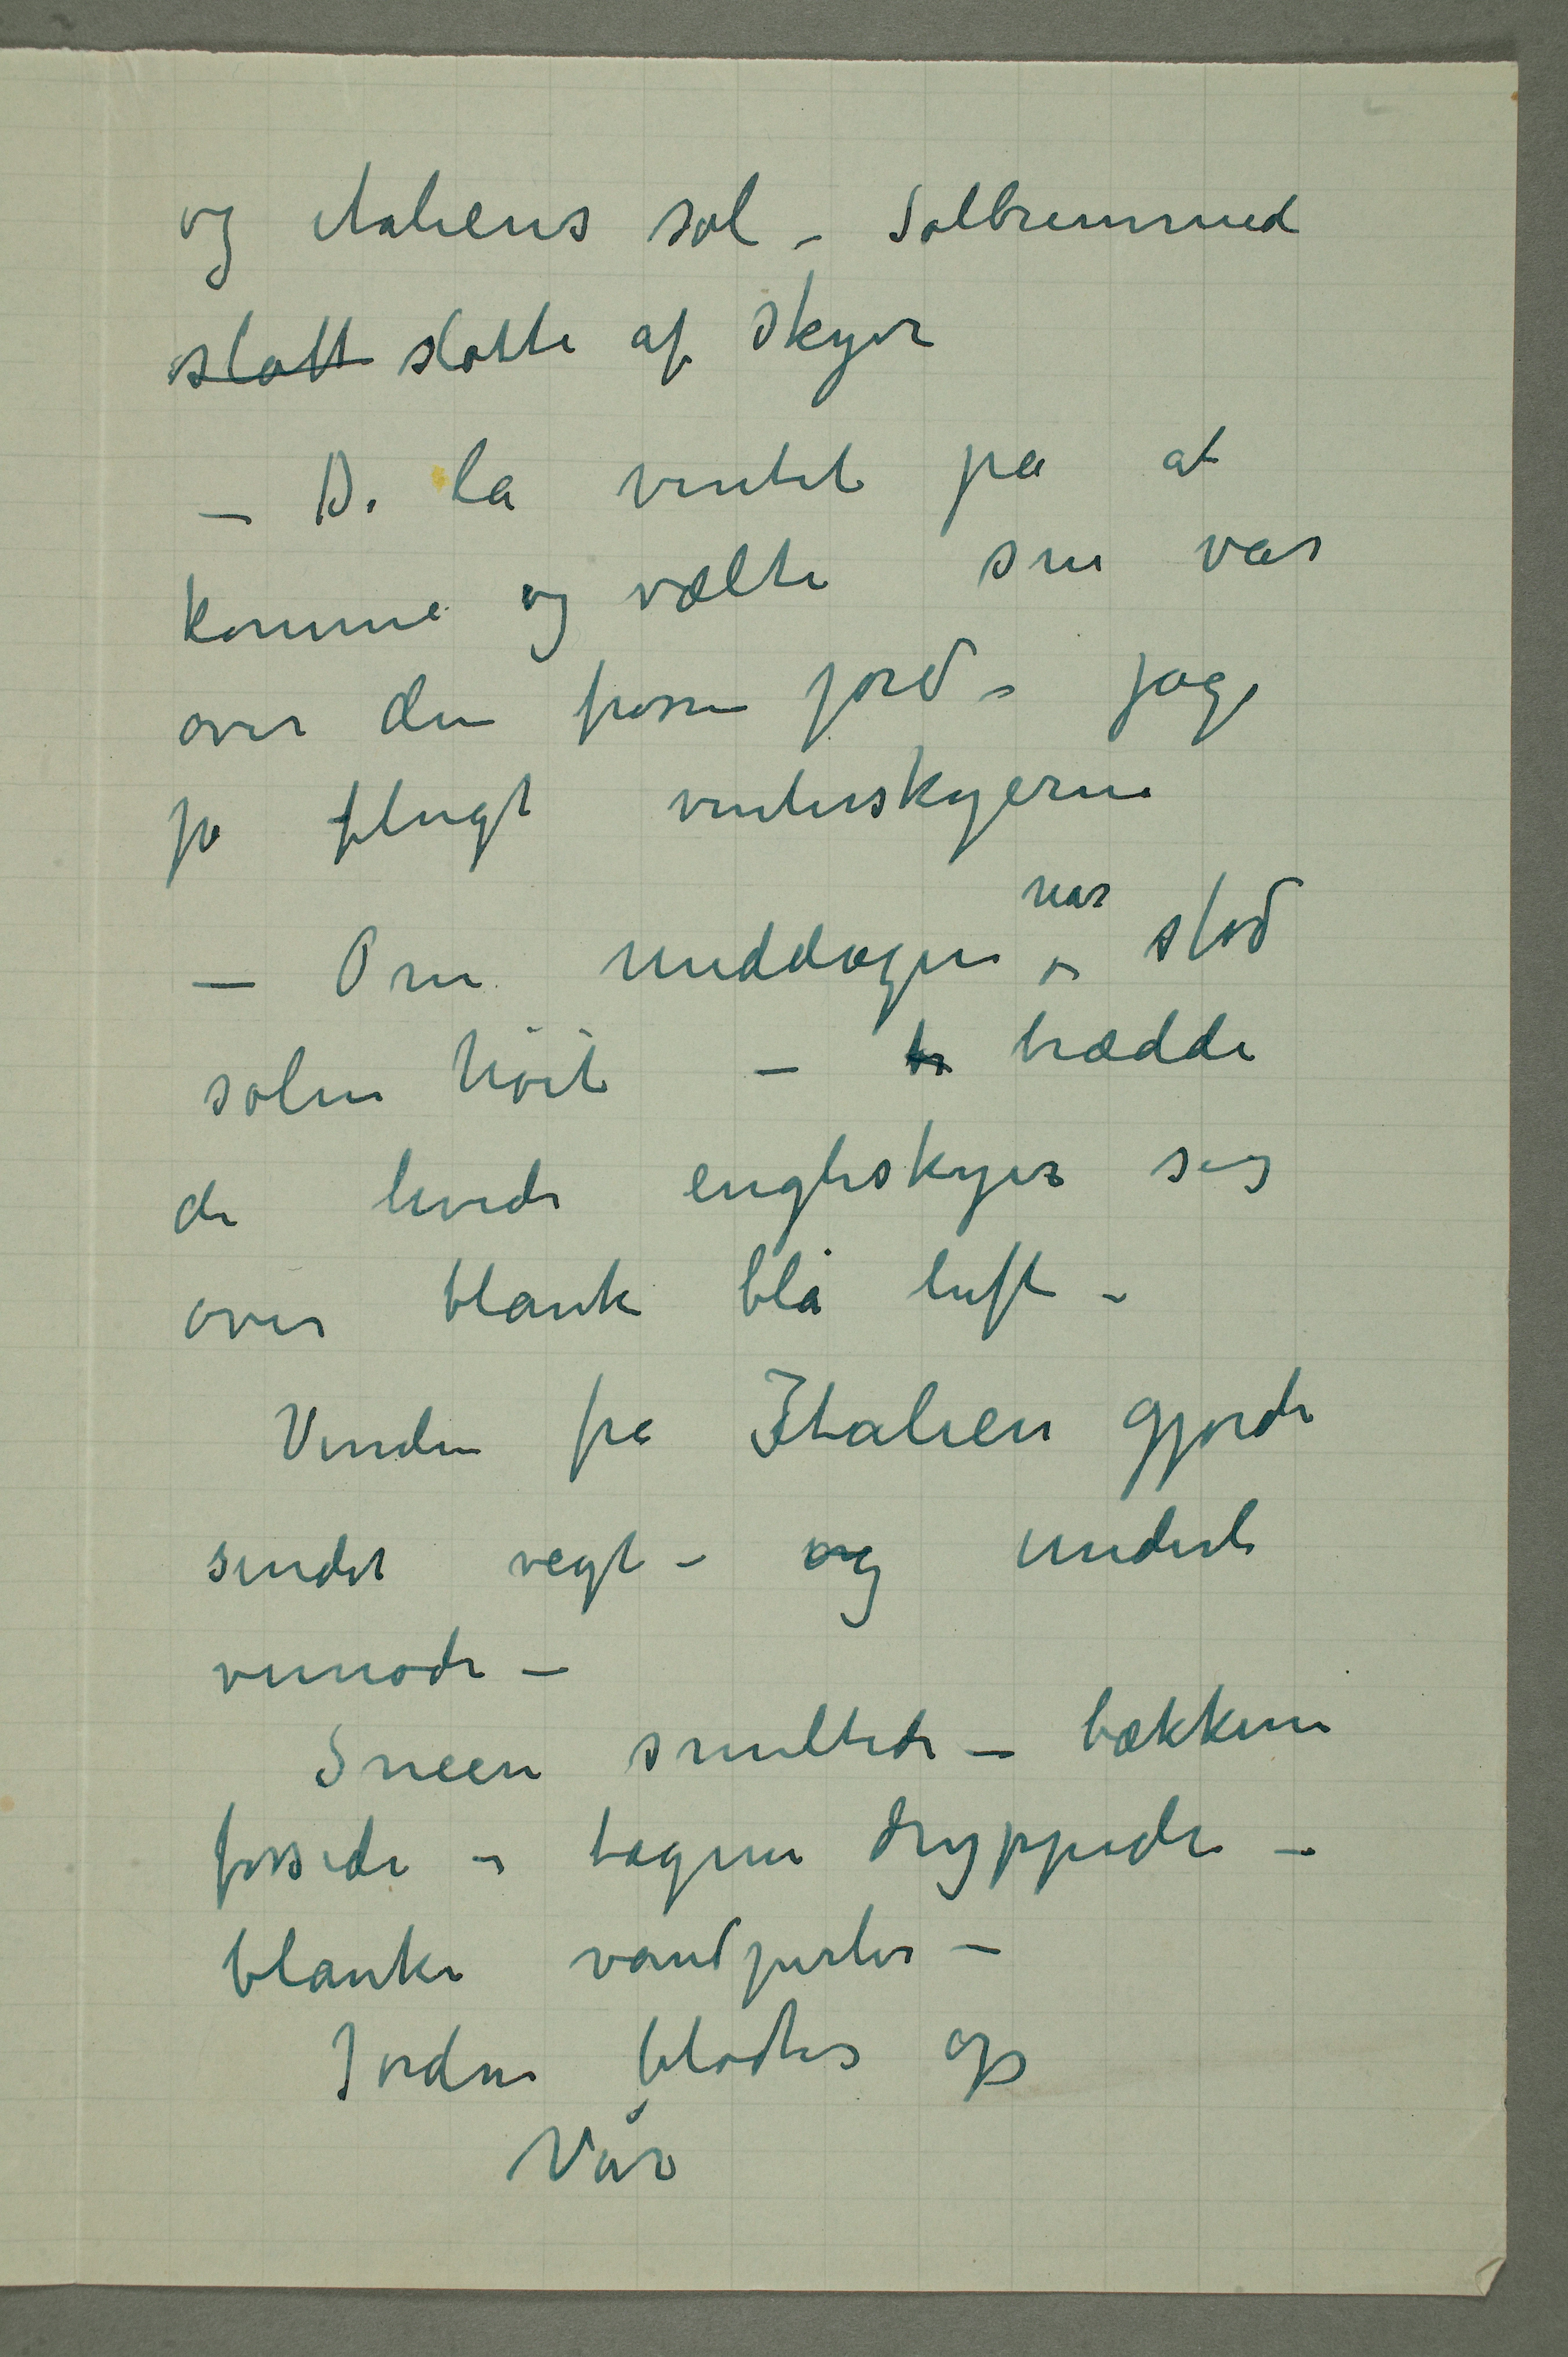 og italiens sol – Solbremmed
slott slotte af skyer
– De la ventet på at
komme og vælte sne var
over den frosne jord – jage
på flugt vinterskyerne
– Om middagen når stod
solen höit – br brædde
de hvide engleskyer sig
over blank blå luft –
Vinden fra Italien gjorde
sindet vegt – og underli
vemodi –
Sneen smeltede – bækkene
fossede – tagene dryppede –
blanke vandperler –
Jorden blödtes op
Vår